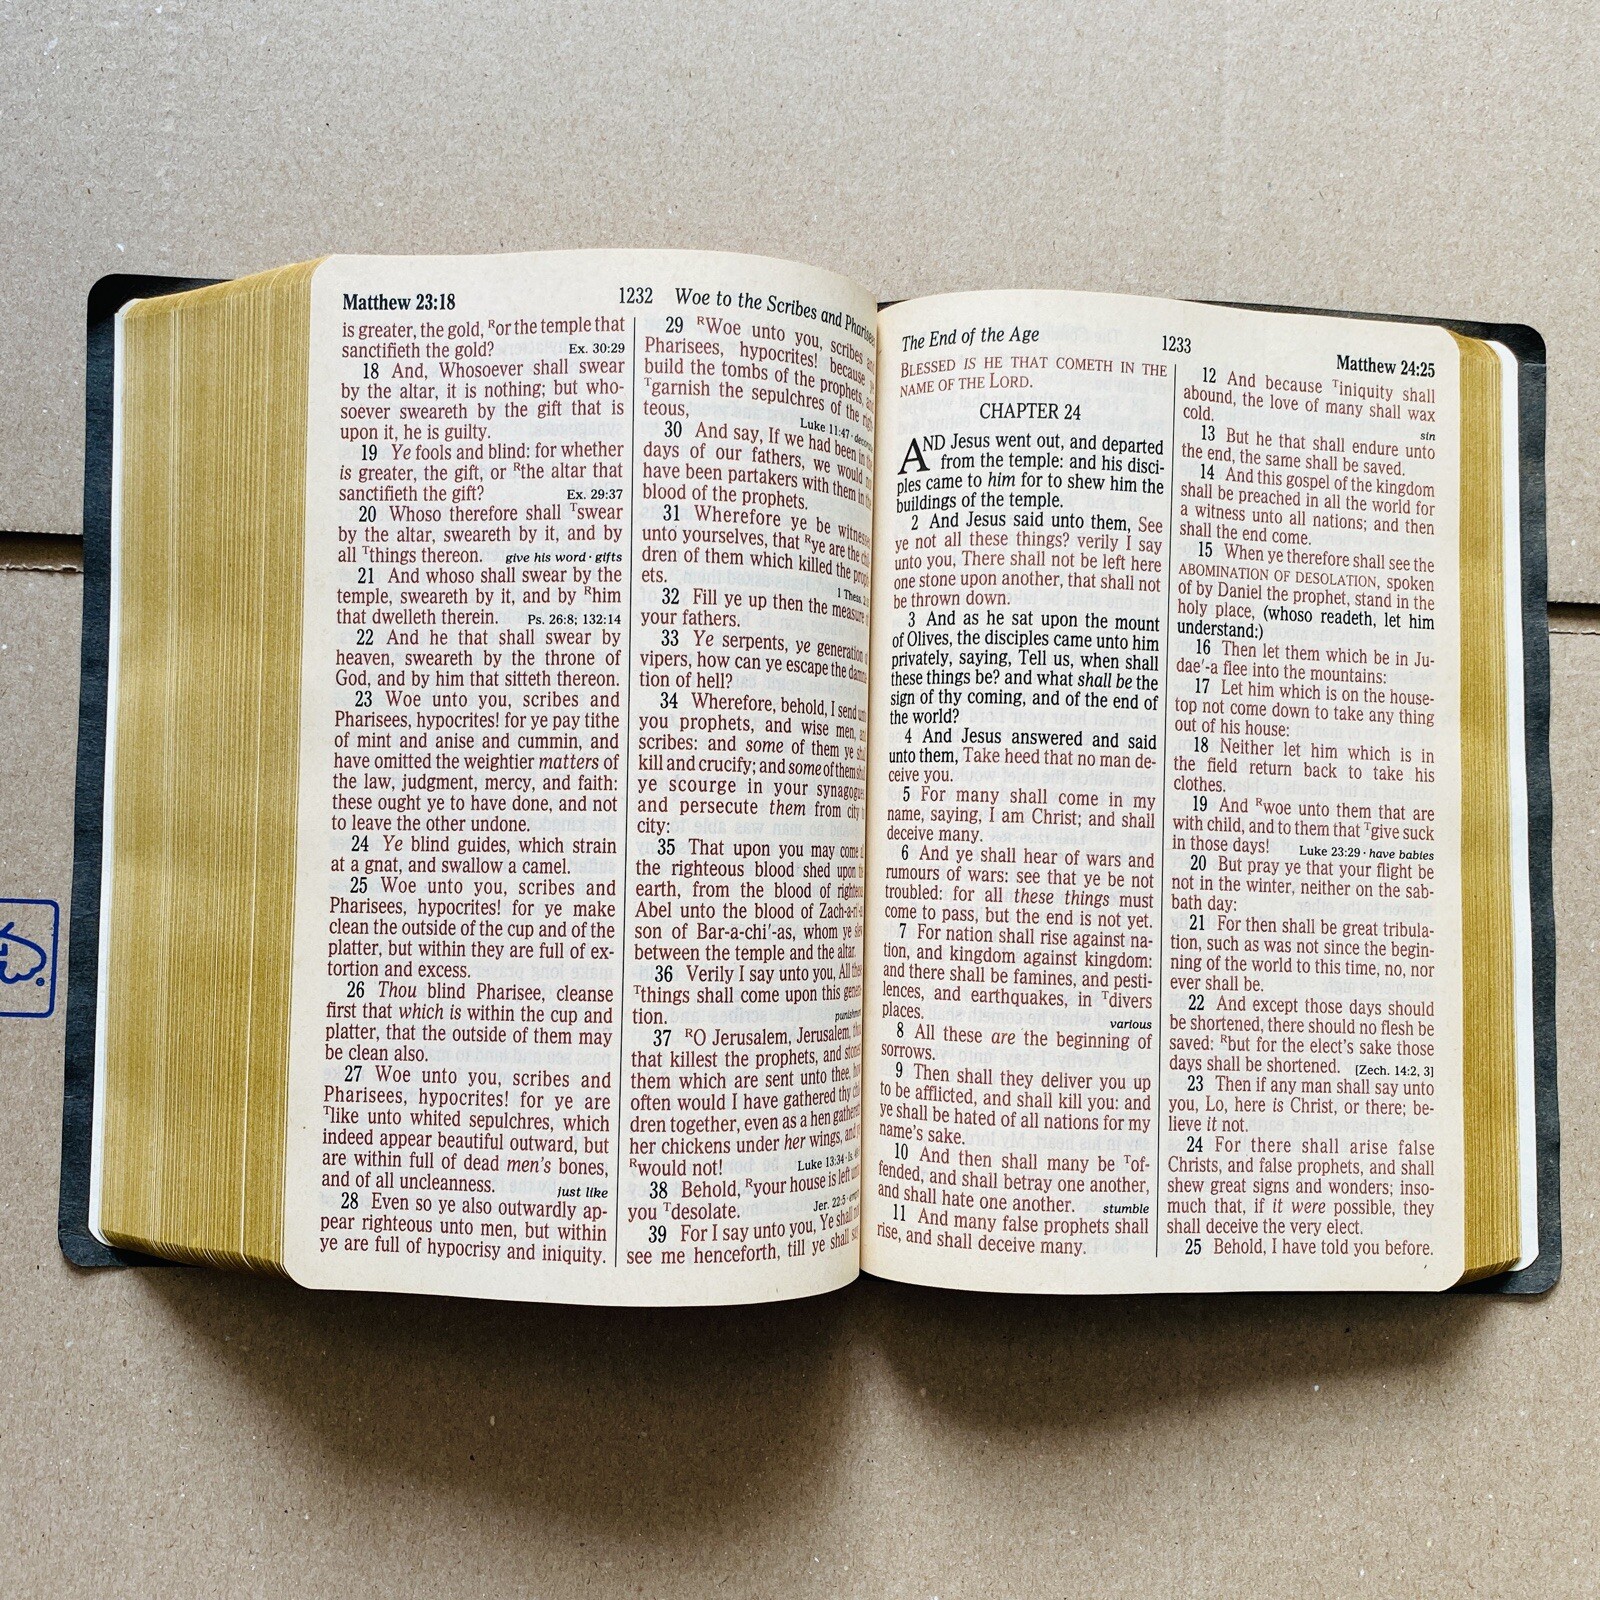 Matthew 23:18
1232
Woe to the Scribes and Pharisees
is greater, the gold, ᴿor the temple that
sanctifieth the gold? Ex. 30:29
18 And, Whosoever shall swear
by the altar, it is nothing; but who-
soever sweareth by the gift that is
upon it, he is guilty.
19 Ye fools and blind: for whether
is greater, the gift, or ᴿthe altar that
sanctifieth the gift? Ex. 29:37
20 Whoso therefore shall ᵀswear
by the altar, sweareth by it, and by
all ᵀthings thereon. give his word · gifts
21 And whoso shall swear by the
temple, sweareth by it, and by ᴿhim
that dwelleth therein. Ps. 26:8; 132:14
22 And he that shall swear by
heaven, sweareth by the throne of
God, and by him that sitteth thereon.
23 Woe unto you, scribes and
Pharisees, hypocrites! for ye pay tithe
of mint and anise and cummin, and
have omitted the weightier matters of
the law, judgment, mercy, and faith:
these ought ye to have done, and not
to leave the other undone.
24 Ye blind guides, which strain
at a gnat, and swallow a camel.
25 Woe unto you, scribes and
Pharisees, hypocrites! for ye make
clean the outside of the cup and of the
platter, but within they are full of ex-
tortion and excess.
26 Thou blind Pharisee, cleanse
first that which is within the cup and
platter, that the outside of them may
be clean also.
27 Woe unto you, scribes and
Pharisees, hypocrites! for ye are
ᵀlike unto whited sepulchres, which
indeed appear beautiful outward, but
are within full of dead men's bones,
and of all uncleanness. just like
28 Even so ye also outwardly ap-
pear righteous unto men, but within
ye are full of hypocrisy and iniquity.
29 ᴿWoe unto you, scribes
Pharisees, hypocrites! because
build the tombs of the prophets,
ᵀgarnish the sepulchres of the
teous, Luke 11:47 ·
30 And say, If we had been in
days of our fathers, we would
have been partakers with them in
blood of the prophets.
31 Wherefore ye be
unto yourselves, that ᴿye are the
dren of them which killed the
ets. 1 Thess.
32 Fill ye up then the measure
your fathers.
33 Ye serpents, ye generation
vipers, how can ye escape the
tion of hell?
34 Wherefore, behold, I send
you prophets, and wise men,
scribes: and some of them ye
kill and crucify; and some of them
ye scourge in your
and persecute them from city
city:
35 That upon you may come
the righteous blood shed upon
earth, from the blood of
Abel unto the blood of
son of Bar-a-chi'-as, whom ye
between the temple and the altar.
36 Verily I say unto you, All
ᵀthings shall come upon this
tion.
37 ᴿO Jerusalem, Jerusalem,
that killest the prophets, and
them which are sent unto thee,
often would I have gathered thy
dren together, even as a hen
her chickens under her wings, and
ᴿwould not! Luke 13:34 ·
38 Behold, ᴿyour house is left
you ᵀdesolate. Jer. 22:5 ·
39 For I say unto you, Ye shall
see me henceforth, till ye shall
The End of the Age
1233
Matthew 24:25
BLESSED IS HE THAT COMETH IN THE
NAME OF THE LORD.
CHAPTER 24
AND Jesus went out, and departed
from the temple: and his disci-
ples came to him for to shew him the
buildings of the temple.
2 And Jesus said unto them, See
ye not all these things? verily I say
unto you, There shall not be left here
one stone upon another, that shall not
be thrown down.
3 And as he sat upon the mount
of Olives, the disciples came unto him
privately, saying, Tell us, when shall
these things be? and what shall be the
sign of thy coming, and of the end of
the world?
4 And Jesus answered and said
unto them, Take heed that no man de-
ceive you.
5 For many shall come in my
name, saying, I am Christ; and shall
deceive many.
6 And ye shall hear of wars and
rumours of wars: see that ye be not
troubled: for all these things must
come to pass, but the end is not yet.
7 For nation shall rise against na-
tion, and kingdom against kingdom:
and there shall be famines, and pesti-
lences, and earthquakes, in ᵀdivers
places. various
8 All these are the beginning of
sorrows.
9 Then shall they deliver you up
to be afflicted, and shall kill you: and
ye shall be hated of all nations for my
name's sake.
10 And then shall many be ᵀof-
fended, and shall betray one another,
and shall hate one another. stumble
11 And many false prophets shall
rise, and shall deceive many.
12 And because ᵀiniquity shall
abound, the love of many shall wax
cold. sin
13 But he that shall endure unto
the end, the same shall be saved.
14 And this gospel of the kingdom
shall be preached in all the world for
a witness unto all nations; and then
shall the end come.
15 When ye therefore shall see the
ABOMINATION OF DESOLATION, spoken
of by Daniel the prophet, stand in the
holy place, (whoso readeth, let him
understand:)
16 Then let them which be in Ju-
dae'-a flee into the mountains:
17 Let him which is on the house-
top not come down to take any thing
out of his house:
18 Neither let him which is in
the field return back to take his
clothes.
19 And ᴿwoe unto them that are
with child, and to them that ᵀgive suck
in those days! Luke 23:29 · have babies
20 But pray ye that your flight be
not in the winter, neither on the sab-
bath day:
21 For then shall be great tribula-
tion, such as was not since the begin-
ning of the world to this time, no, nor
ever shall be.
22 And except those days should
be shortened, there should no flesh be
saved: ᴿbut for the elect's sake those
days shall be shortened. [Zech. 14:2, 3]
23 Then if any man shall say unto
you, Lo, here is Christ, or there; be-
lieve it not.
24 For there shall arise false
Christs, and false prophets, and shall
shew great signs and wonders; inso-
much that, if it were possible, they
shall deceive the very elect.
25 Behold, I have told you before.